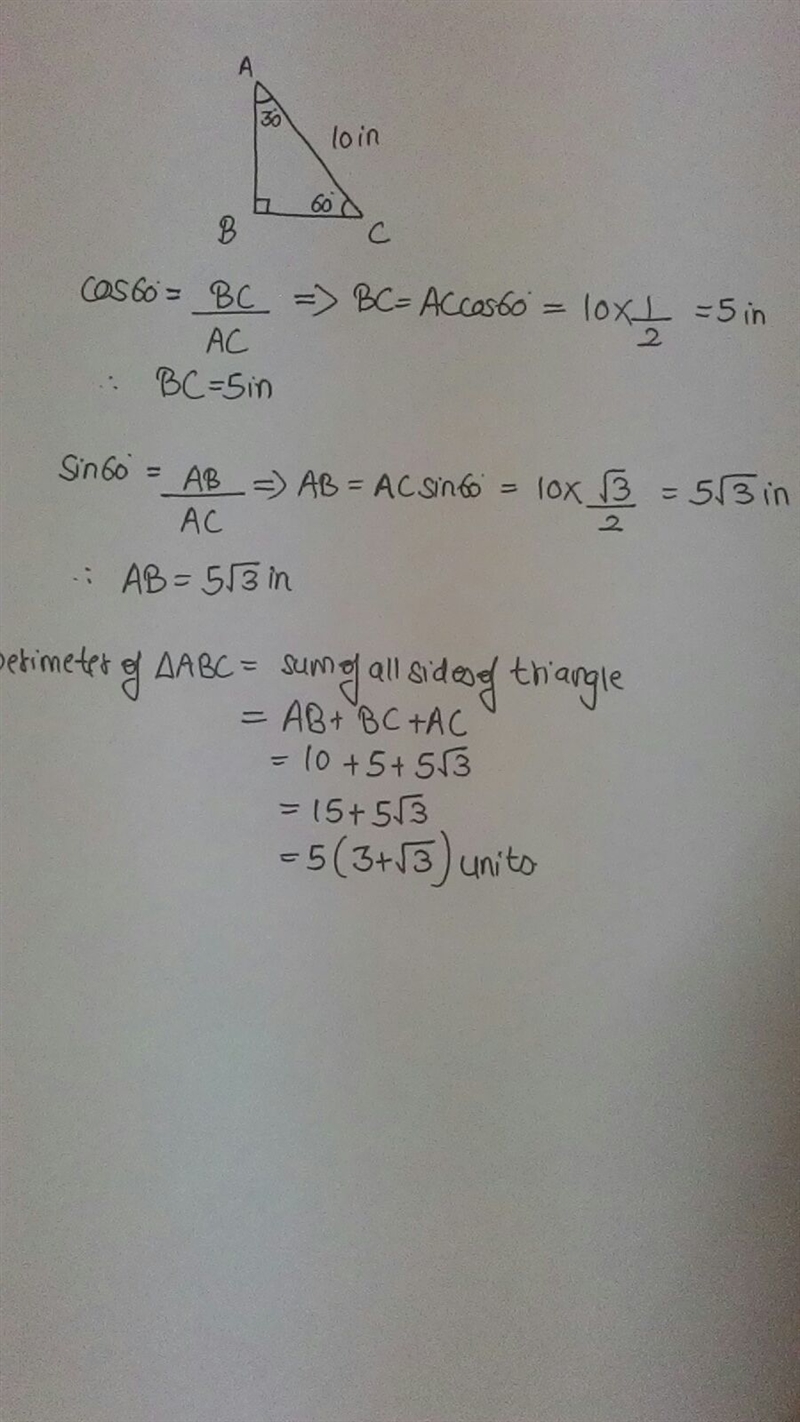 A
30°
10in
60°
B
C
Cos60° = BC/AC => BC = ACcos60° = 10 × 1/2 = 5in
∴ BC = 5in
Sin60° = AB/AC => AB = ACsin60° = 10 × √3/2 = 5√3 in
∴ AB = 5√3 in
perimeter of ΔABC = sum of all sides of triangle
= AB + BC + AC
= 10 + 5 + 5√3
= 15 + 5√3
= 5(3+√3) units